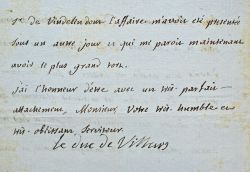 de Vindelen dont l'affaire m'avoit eté presentée
sous un autre jour ce qui me paroit maintenant
avoir le plus grand tort.
j'ai l'honneur d'être avec un très parfait
attachement, Monsieur, Votre très humble et
très obeissant serviteur
le duc de Villars